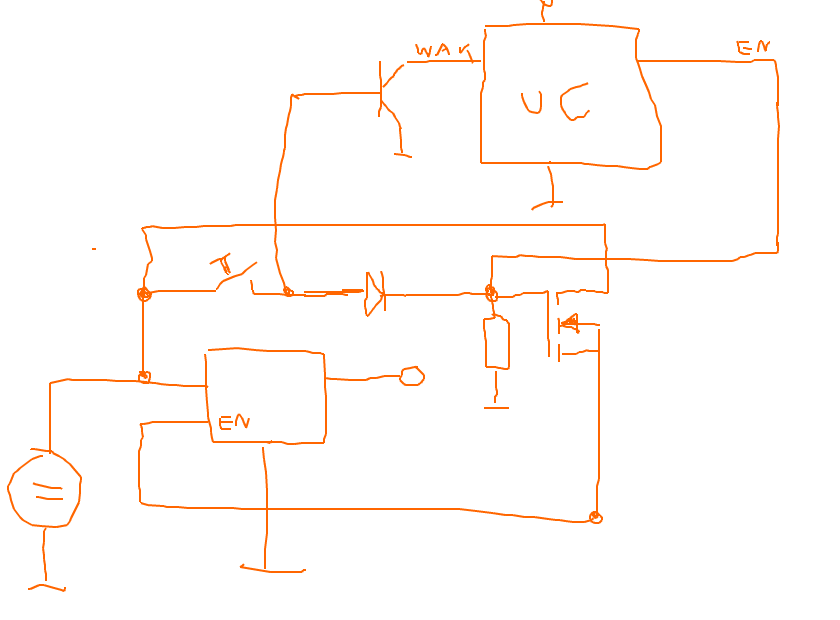 WAK
EN
UC
EN